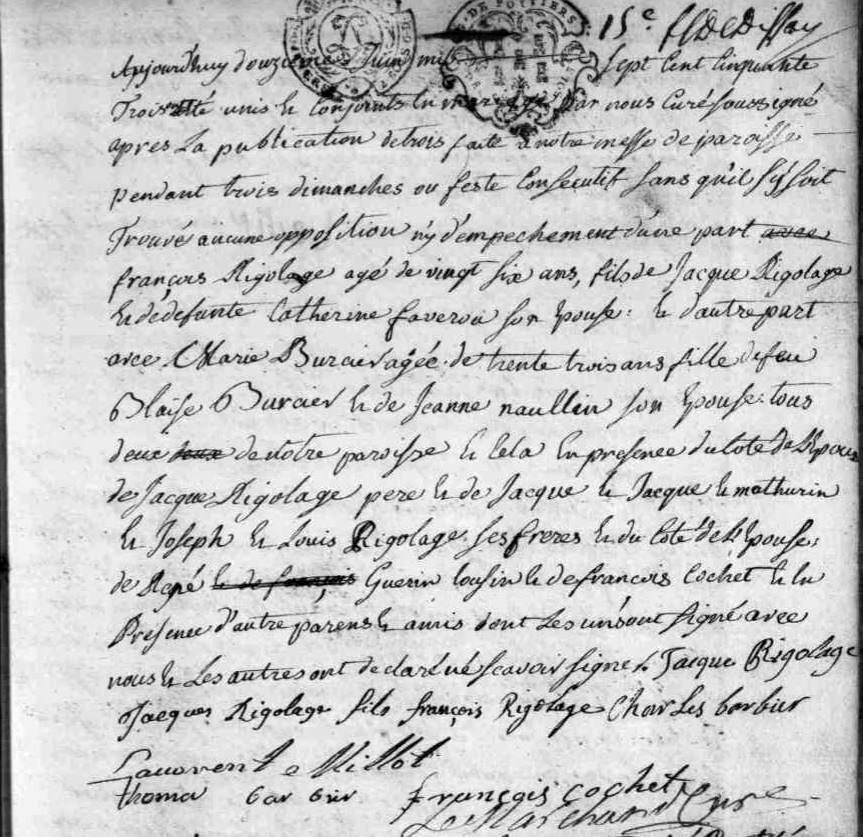 DE POITIERS
15e ff De Dissay
Aujourdhuy douzieme Juin mil sept cent cinquante
Trois etté unis et conjoints en mariage par nous Curé soussigné
apres La publication de trois faite a notre messe de paroisse
pendant trois dimanches ou feste Consecutif sans qu'il s'y soit
Trouvé aucune opposition n'y d'empechement d'une part avec
françois Rigolage agé de vingt six ans, fils de Jacque Rigolage
et de defunte Catherine faverou son Epouse: et d'autre part
avec Marie Burcier agée de trente trois ans fille de feu
Blaise Burcier et de Jeanne naullin son Epouse: tous
deux deux de notre paroisse et cela En presence du Coté de L'Epoux
de Jacque Rigolage pere et de Jacque et Jacque et mathurin
et Joseph et Louis Rigolage ses freres et du Coté de L'Epouse;
de René et de françois Guerin Cousin et de francois Cochet et En
Presence d'autre parens et amis dont Les uns ont signé avec
nous et Les autres ont declaré ne scavoir signer. Jacque Rigolage
Jacques Rigolage fils françois Rigolage Charles barbier
Laurent Millot
thoma barbier françois cochet
Le Marchand Curé